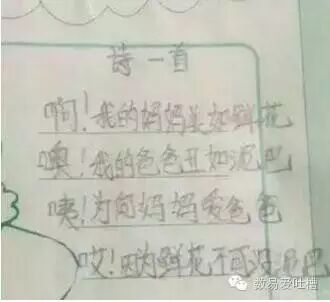 詩一首
啊！我的妈妈美如鲜花
噢！我的爸爸丑如泥巴
咦！为何妈妈爱爸爸
哎！因为鲜花不可没泥巴
数易爱吐槽